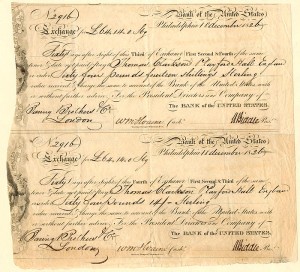 No 2916 Bank of the United States
Philadelphia 11 December 1826
Exchange for L64.14.0 Stg
Sixty days after sight of this Third of Exchange First Second & Fourth of the same
Tenor and date unpaid pay to Thomas Clarkson Playford Hall England
Sixty four pounds fourteen shillings Sterling
value received & Charge the same to account of the Bank of the United States with
or without further advice. For the President Directors and Company of
The BANK of the UNITED STATES.
Baring Brothers & Co
London
No 2916 Bank of the United States
Philadelphia 11 December 1826
Exchange for L64.14.0 Stg
Sixty days after sight of this Fourth of Exchange First Second & Third of the same
Tenor and date unpaid pay to Thomas Clarkson Playford Hall England
Sixty four pounds 14/ Sterling
value received & Charge the same to account of the Bank of the United States with
or without further advice. For the President Directors and Company of
The BANK of the UNITED STATES.
Baring Brothers & Co
London